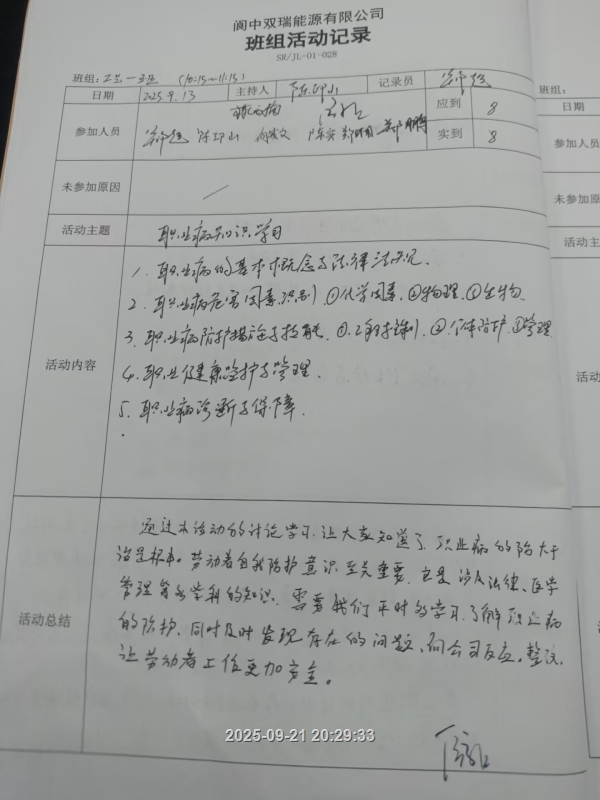 阆中双瑞能源有限公司
班组活动记录
SR/JL-01-028
班组：工艺一班 (10:15~11:15)
日期 2025.9.13 主持人 陈邛山 记录员
参加人员 应到 8
陈邛山 实到 8
未参加原因
活动主题 职业病知识学习
活动内容
1. 职业病的基本概念与法律法规.
2. 职业病危害因素识别 ①化学因素,②物理,③生物.
3. 职业病防护措施与技能 ①.工程控制 ②.个体防护 ③管理
4. 职业健康监护与管理.
5. 职业病诊断与保障.
活动总结
通过本活动的讨论学习,让大家知道了职业病的防大于
治是根本。劳动者自我防护意识至关重要,它是涉及法律、医学
管理等多学科的知识.需要我们平时多学习、了解职业病
的防护,同时及时发现存在的问题,向公司反应,整改,
让劳动者工作更加安全。
2025-09-21 20:29:33
班组：
日期
参加人员
未参加原因
活动主
活动